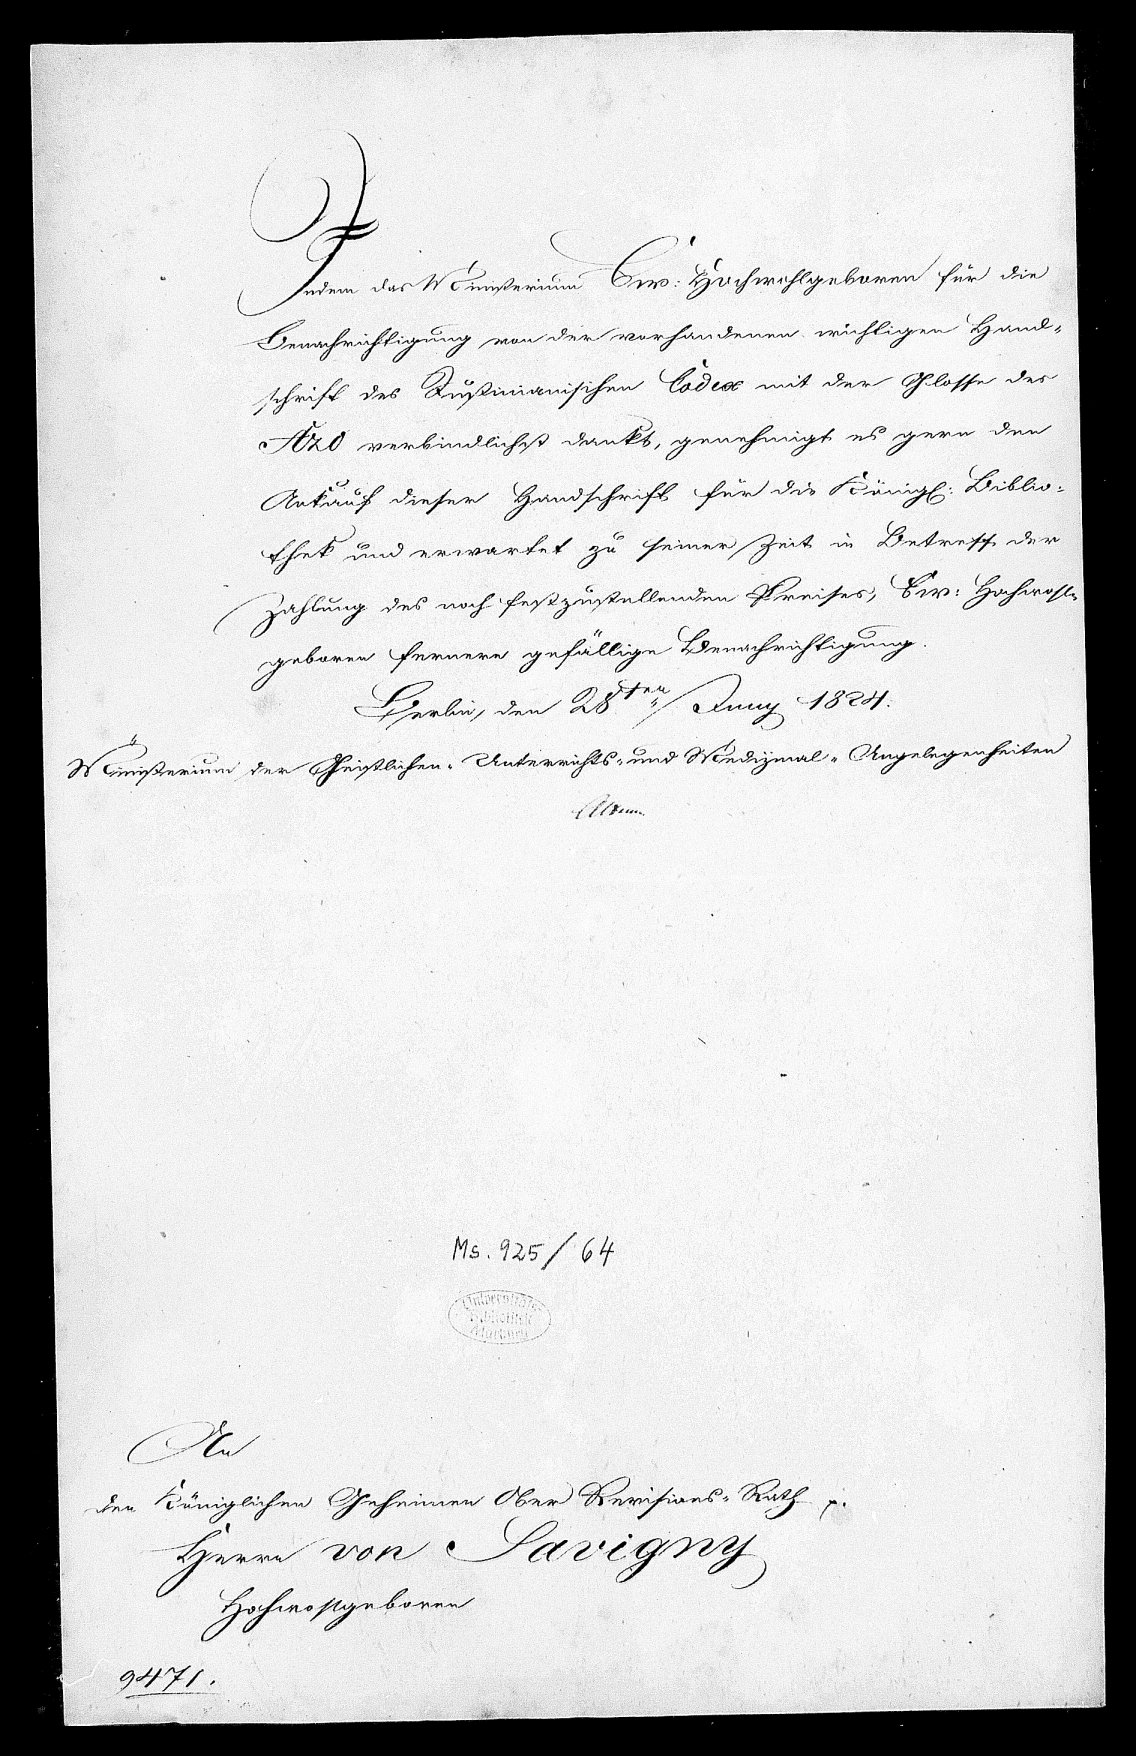 Indem das Ministerium Ew: Hochwohlgeboren für die
Benachrichtigung von der vorhandenen wichtigen Hand-
schrift des Justinianischen Codex mit der Glosse des
Azo verbindlichst dankt, genehmigt es gern den
Ankauf dieser Handschrift für die Königl: Biblio-
thek und erwartet zu seiner Zeit in Betreff der
Zahlung des noch festzustellenden Preises, Ew: Hochwohl-
geboren fernere gefällige Benachrichtigung.
Berlin, den 28ten Juny 1824.
Ministerium der Geistlichen- Unterrichts- und Medizinal- Angelegenheiten
Ms. 925/64
Universitäts
Bibliothek
Marburg
An
den Königlichen Geheimen Ober Revisions-Rath p.
Herrn von Savigny
Hochwohlgeboren
9471.